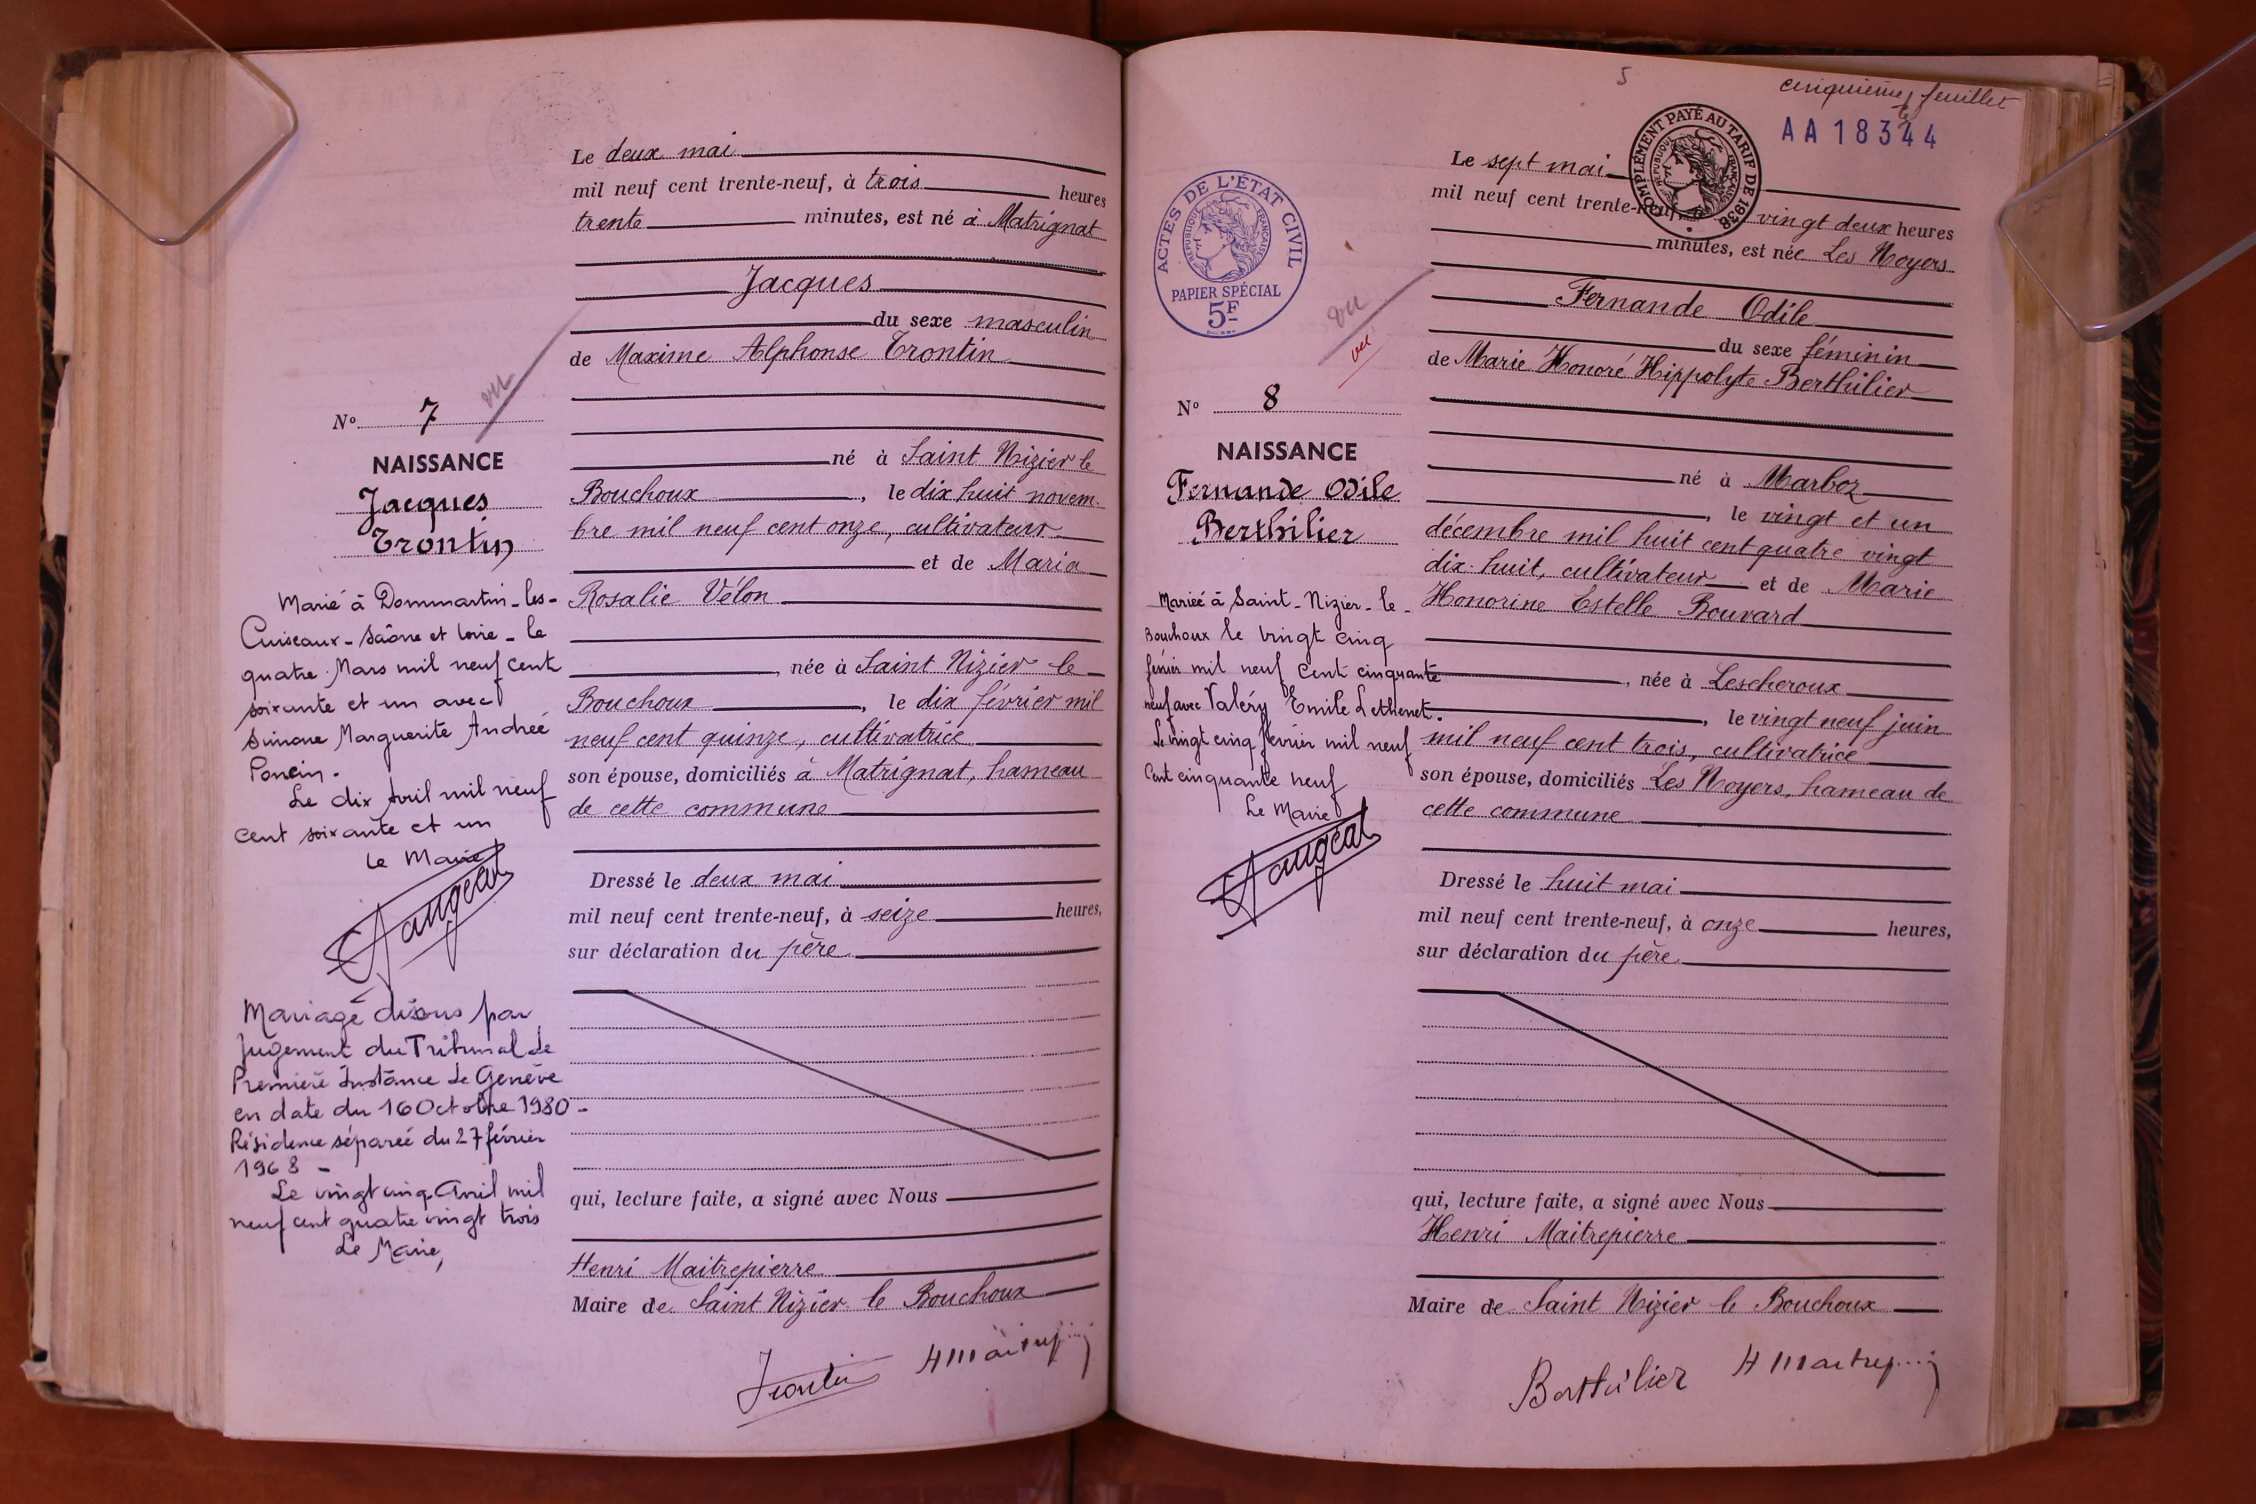 Le deux mai
mil neuf cent trente-neuf, à trois heures
trente minutes, est né à Matrignat
Jacques
du sexe masculin
de Maxime Alphonse Trontin
né à Saint Nizier le
Bouchoux, le dix huit novem-
bre mil neuf cent onze, cultivateur
et de Maria
Rosalie Vélon
, née à Saint Nizier le
Bouchoux, le dix février mil
neuf cent quinze, cultivatrice
son épouse, domiciliés à Matrignat, hameau
de cette commune
Dressé le deux mai
mil neuf cent trente-neuf, à seize heures,
sur déclaration du père
qui, lecture faite, a signé avec Nous
Henri Maitrepierre
Maire de Saint Nizier le Bouchoux
Trontin
vu
N° 7
NAISSANCE
Jacques
Trontin
Marié à Dommartin-les-
Cuiseaux - Saône et Loire - le
quatre Mars mil neuf cent
soixante et un avec
Simone Marguerite Andrée
Poncin.
Le dix Avril mil neuf
cent soixante et un
Le Maire
Mariage dissous par
Jugement du Tribunal de
Première Instance de Genève
en date du 16 Octobre 1980 -
Résidence séparée du 27 février
1968 -
Le vingt cinq Avril mil
neuf cent quatre vingt trois
Le Maire,
5
cinquième feuillet
AA 18344
COMPLÉMENT PAYÉ AU TARIF DE 1938
RÉPUBLIQUE FRANÇAISE
ACTES DE L'ÉTAT CIVIL
RÉPUBLIQUE FRANÇAISE
PAPIER SPÉCIAL
5F
Le sept mai
mil neuf cent trente-neuf, à vingt deux heures
minutes, est née Les Noyers
Fernande Odile
du sexe féminin
de Marie Honoré Hippolyte Berthilier
né à Marboz
, le vingt et un
décembre mil huit cent quatre vingt
dix-huit, cultivateur et de Marie
Honorine Estelle Bouvard
, née à Lescheroux
, le vingt neuf juin
mil neuf cent trois, cultivatrice
son épouse, domiciliés Les Noyers, hameau de
cette commune
Dressé le huit mai
mil neuf cent trente-neuf, à onze heures,
sur déclaration du père
qui, lecture faite, a signé avec Nous
Henri Maitrepierre
Maire de Saint Nizier le Bouchoux
Berthilier
vu
vu
N° 8
NAISSANCE
Fernande Odile
Berthilier
Mariée à Saint-Nizier-le-
Bouchoux le vingt cinq
février mil neuf cent cinquante
neuf avec Valéry Emile Lethenet.
Le vingt cinq février mil neuf
Cent cinquante neuf
Le Maire